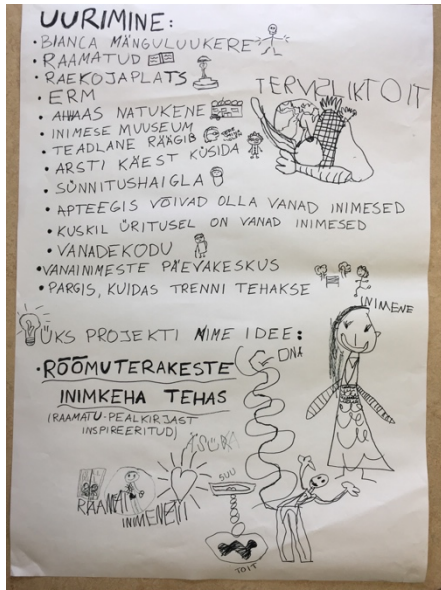 UURIMINE:
• BIANCA MÄNGULUUKERE
• RAAMATUD
• RAEKOJAPLATS
• ERM
• AHHAAS NATUKENE
• INIMESE MUUSEUM
• TEADLANE RÄÄGIB
• ARSTI KÄEST KÜSIDA
• SÜNNITUSHAIGLA
• APTEEGIS VÕIVAD OLLA VANAD INIMESED
• KUSKIL ÜRITUSEL ON VANAD INIMESED
• VANADEKODU
• VANAINIMESTE PÄEVAKESKUS
• PARGIS, KUIDAS TRENNI TEHAKSE
TERVISLIKTOIT
INIMENE
ÜKS PROJEKTI NIME IDEE:
• RÕÕMUTERAKESTE
INIMKEHA TEHAS
(RAAMATU-PEALKIRJAST
INSPIREERITUD)
DNA
SUU
RAAMAT
TOIT